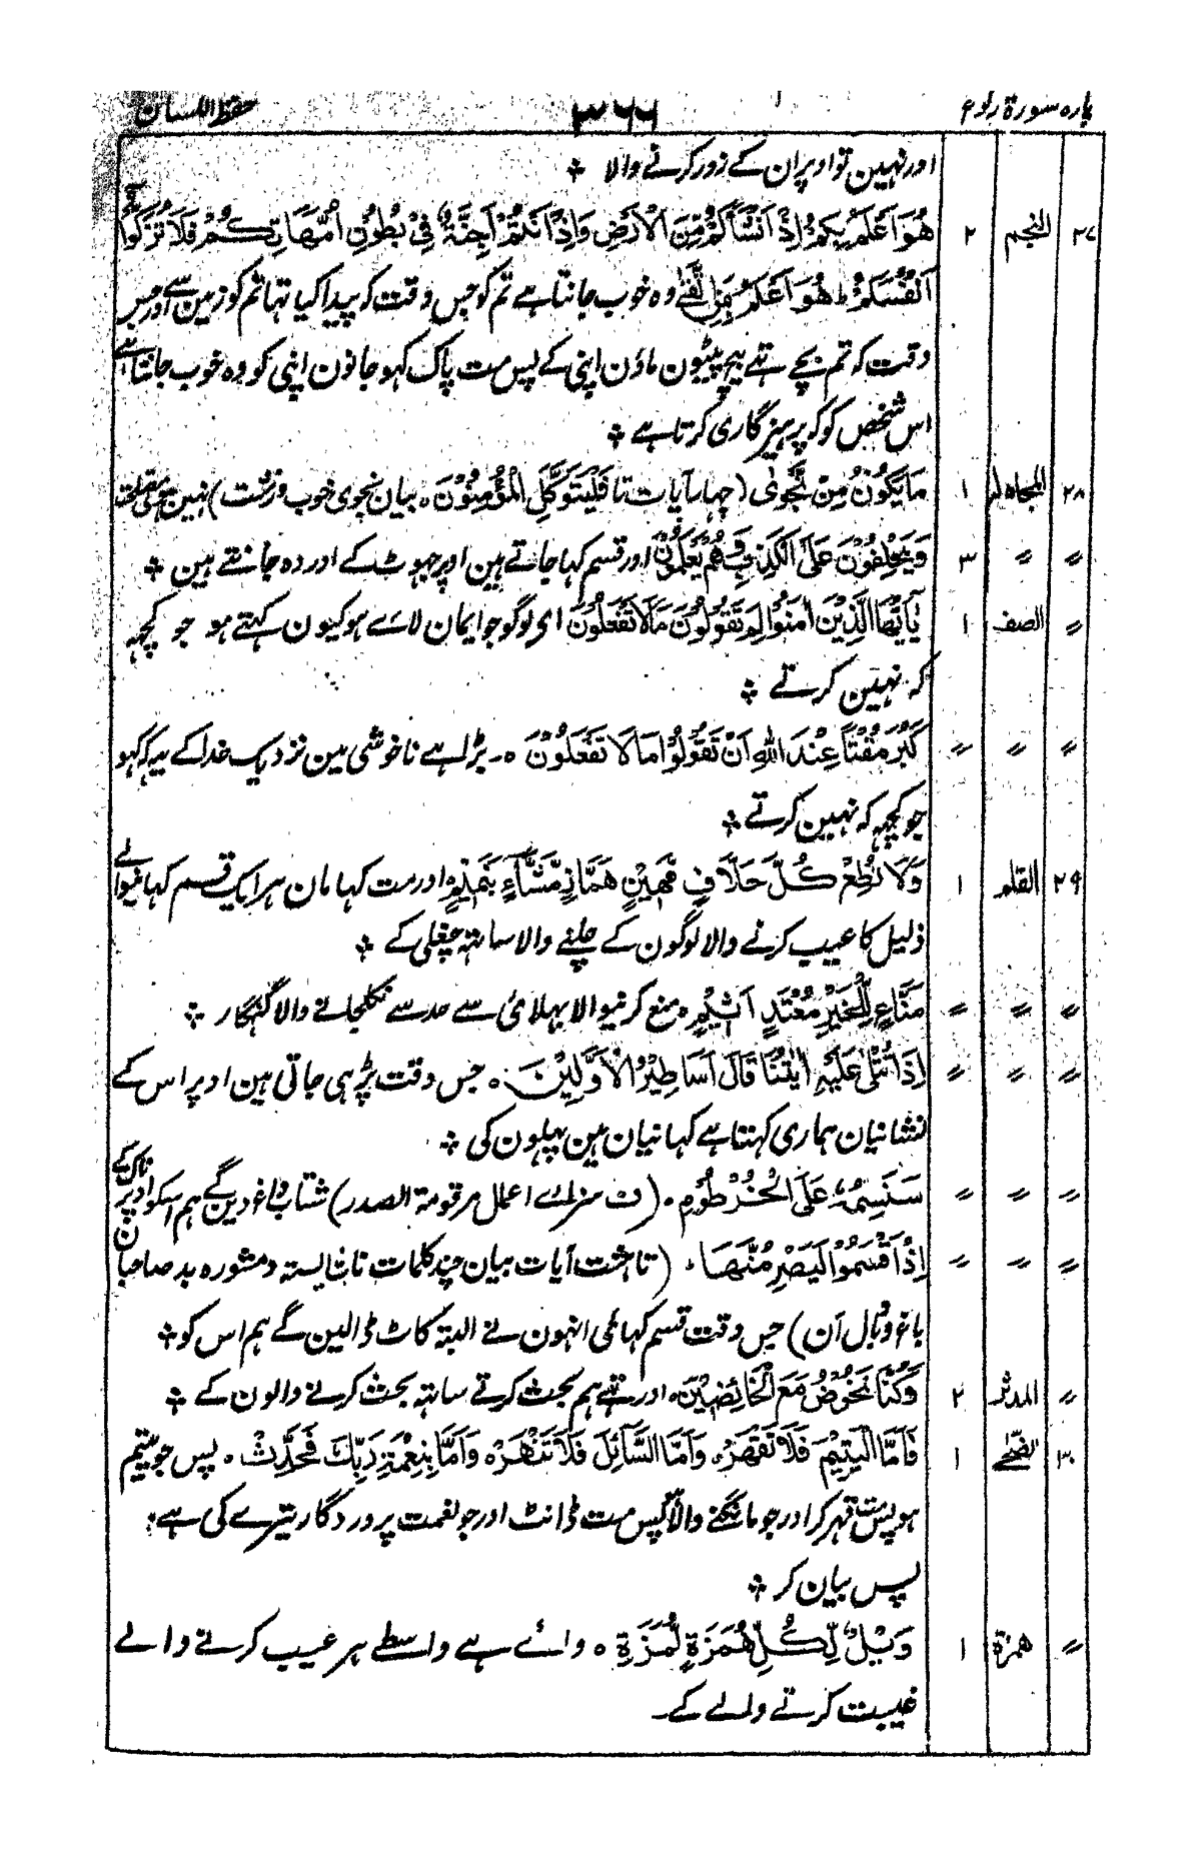 پارہ سورۃ رکوع ۳۶۶ حفظ اللسان
اور نہین تو اوپر ان کے زور کرنے والا ❖
۲۷ النجم ۲ هُوَ اَعْلَمُ بِكُمْ اِذْ اَنْشَاَكُمْ مِّنَ الْاَرْضِ وَاِذْ اَنْتُمْ اَجِنَّةٌ فِیْ بُطُوْنِ اُمَّهَاتِكُمْ فَلَا تُزَكُّوْا
اَنْفُسَكُمْ ؕ هُوَ اَعْلَمُ بِمَنِ اتَّقٰى وہ خوب جانتا ہے تم کو جس وقت کو پیدا کیا تہا تم کو زمین سے اور جس
وقت کہ تم بچے تہے بیچ پیٹون ماؤن اپنی کے پس مت پاک کہو جانون اپنی کو وہ خوب جانتا ہے
اس شخص کو کہ پرہیزگاری کرتا ہے ❖
۲۸ المجادلہ ۱ مَا يَكُوْنُ مِنْ نَّجْوٰى (چہار آیات تا فَلْيَتَوَكَّلِ الْمُؤْمِنُوْنَ ہ بیان نجوی خوب و زشت) نہین ہوتی مصلحت
〃 〃 ۳ وَيَحْلِفُوْنَ عَلَى الْكَذِبِ وَهُمْ يَعْلَمُوْنَ اور قسم کہا جاتے ہین اوپر جہوٹ کے اور وہ جانتے ہین ❖
〃 الصف ۱ يٰٓاَيُّهَا الَّذِيْنَ اٰمَنُوْا لِمَ تَقُوْلُوْنَ مَا لَا تَفْعَلُوْنَ ای لوگو جو ایمان لائے ہو کیون کہتے ہو جو کچہہ
کہ نہین کرتے ❖
〃 〃 〃 كَبُرَ مَقْتًا عِنْدَ اللّٰهِ اَنْ تَقُوْلُوْا مَا لَا تَفْعَلُوْنَ ہ۔ بڑا ہے ناخوشی مین نزدیک خدا کے یہ کہ کہو
جو کچہہ کہ نہین کرتے ❖
۲۹ القلم ۱ وَلَا تُطِعْ كُلَّ حَلَّافٍ مَّهِيْنٍ هَمَّازٍ مَّشَّآءٍ بِنَمِيْمٍ اور مت کہا مان ہر ایک قسم کہانیوالے
ذلیل کا عیب کرنے والا لوگون کے چلنے والا ساتہہ چغلی کے ❖
〃 〃 〃 مَنَّاعٍ لِّلْخَيْرِ مُعْتَدٍ اَثِيْمٍ ہ منع کرنیوالا بہلائی سے حد سے نکلجانے والا گنہگار ❖
〃 〃 〃 اِذَا تُتْلٰى عَلَيْهِ اٰيٰتُنَا قَالَ اَسَاطِيْرُ الْاَوَّلِيْنَ ہ جس وقت پڑہی جاتی ہین اوپر اس کے
نشانیان ہماری کہتا ہے کہانیان ہین پہلون کی ❖
〃 〃 〃 سَنَسِمُهٗ عَلَى الْخُرْطُوْمِ ہ (ف سزائے اعمال مرقومۃ الصدر) شتاب داغ دین گے ہم اسکو اوپر ناک کے
〃 〃 〃 اِذْ اَقْسَمُوْا لَيَصْرِمُنَّهَا ہ (تا ہشت آیات بیان چند کلمات ناشایستہ و مشورہ بد صاحبان
باغ و وبال آن) جس وقت قسم کہائی انہون نے البتہ کاٹ ڈالین گے ہم اس کو ❖
〃 المدثر ۲ وَكُنَّا نَخُوْضُ مَعَ الْخَآئِضِيْنَ ہ اور تہے ہم بحث کرتے ساتہہ بحث کرنے والون کے ❖
۳۰ الضحٰے ۱ فَاَمَّا الْيَتِيْمَ فَلَا تَقْهَرْ ہ وَاَمَّا السَّآئِلَ فَلَا تَنْهَرْ ہ وَاَمَّا بِنِعْمَةِ رَبِّكَ فَحَدِّثْ ہ پس جو یتیم
ہو پس مت قہر کر اور جو مانگنے والا پس مت ڈانٹ اور جو نعمت پروردگار تیرے کی ہے۔
پس بیان کر ❖
〃 ہمزۃ ۱ وَيْلٌ لِّكُلِّ هُمَزَةٍ لُّمَزَةٍ ہ وائے ہے واسطے ہر عیب کرنے والے
غیبت کرنے والے کے۔